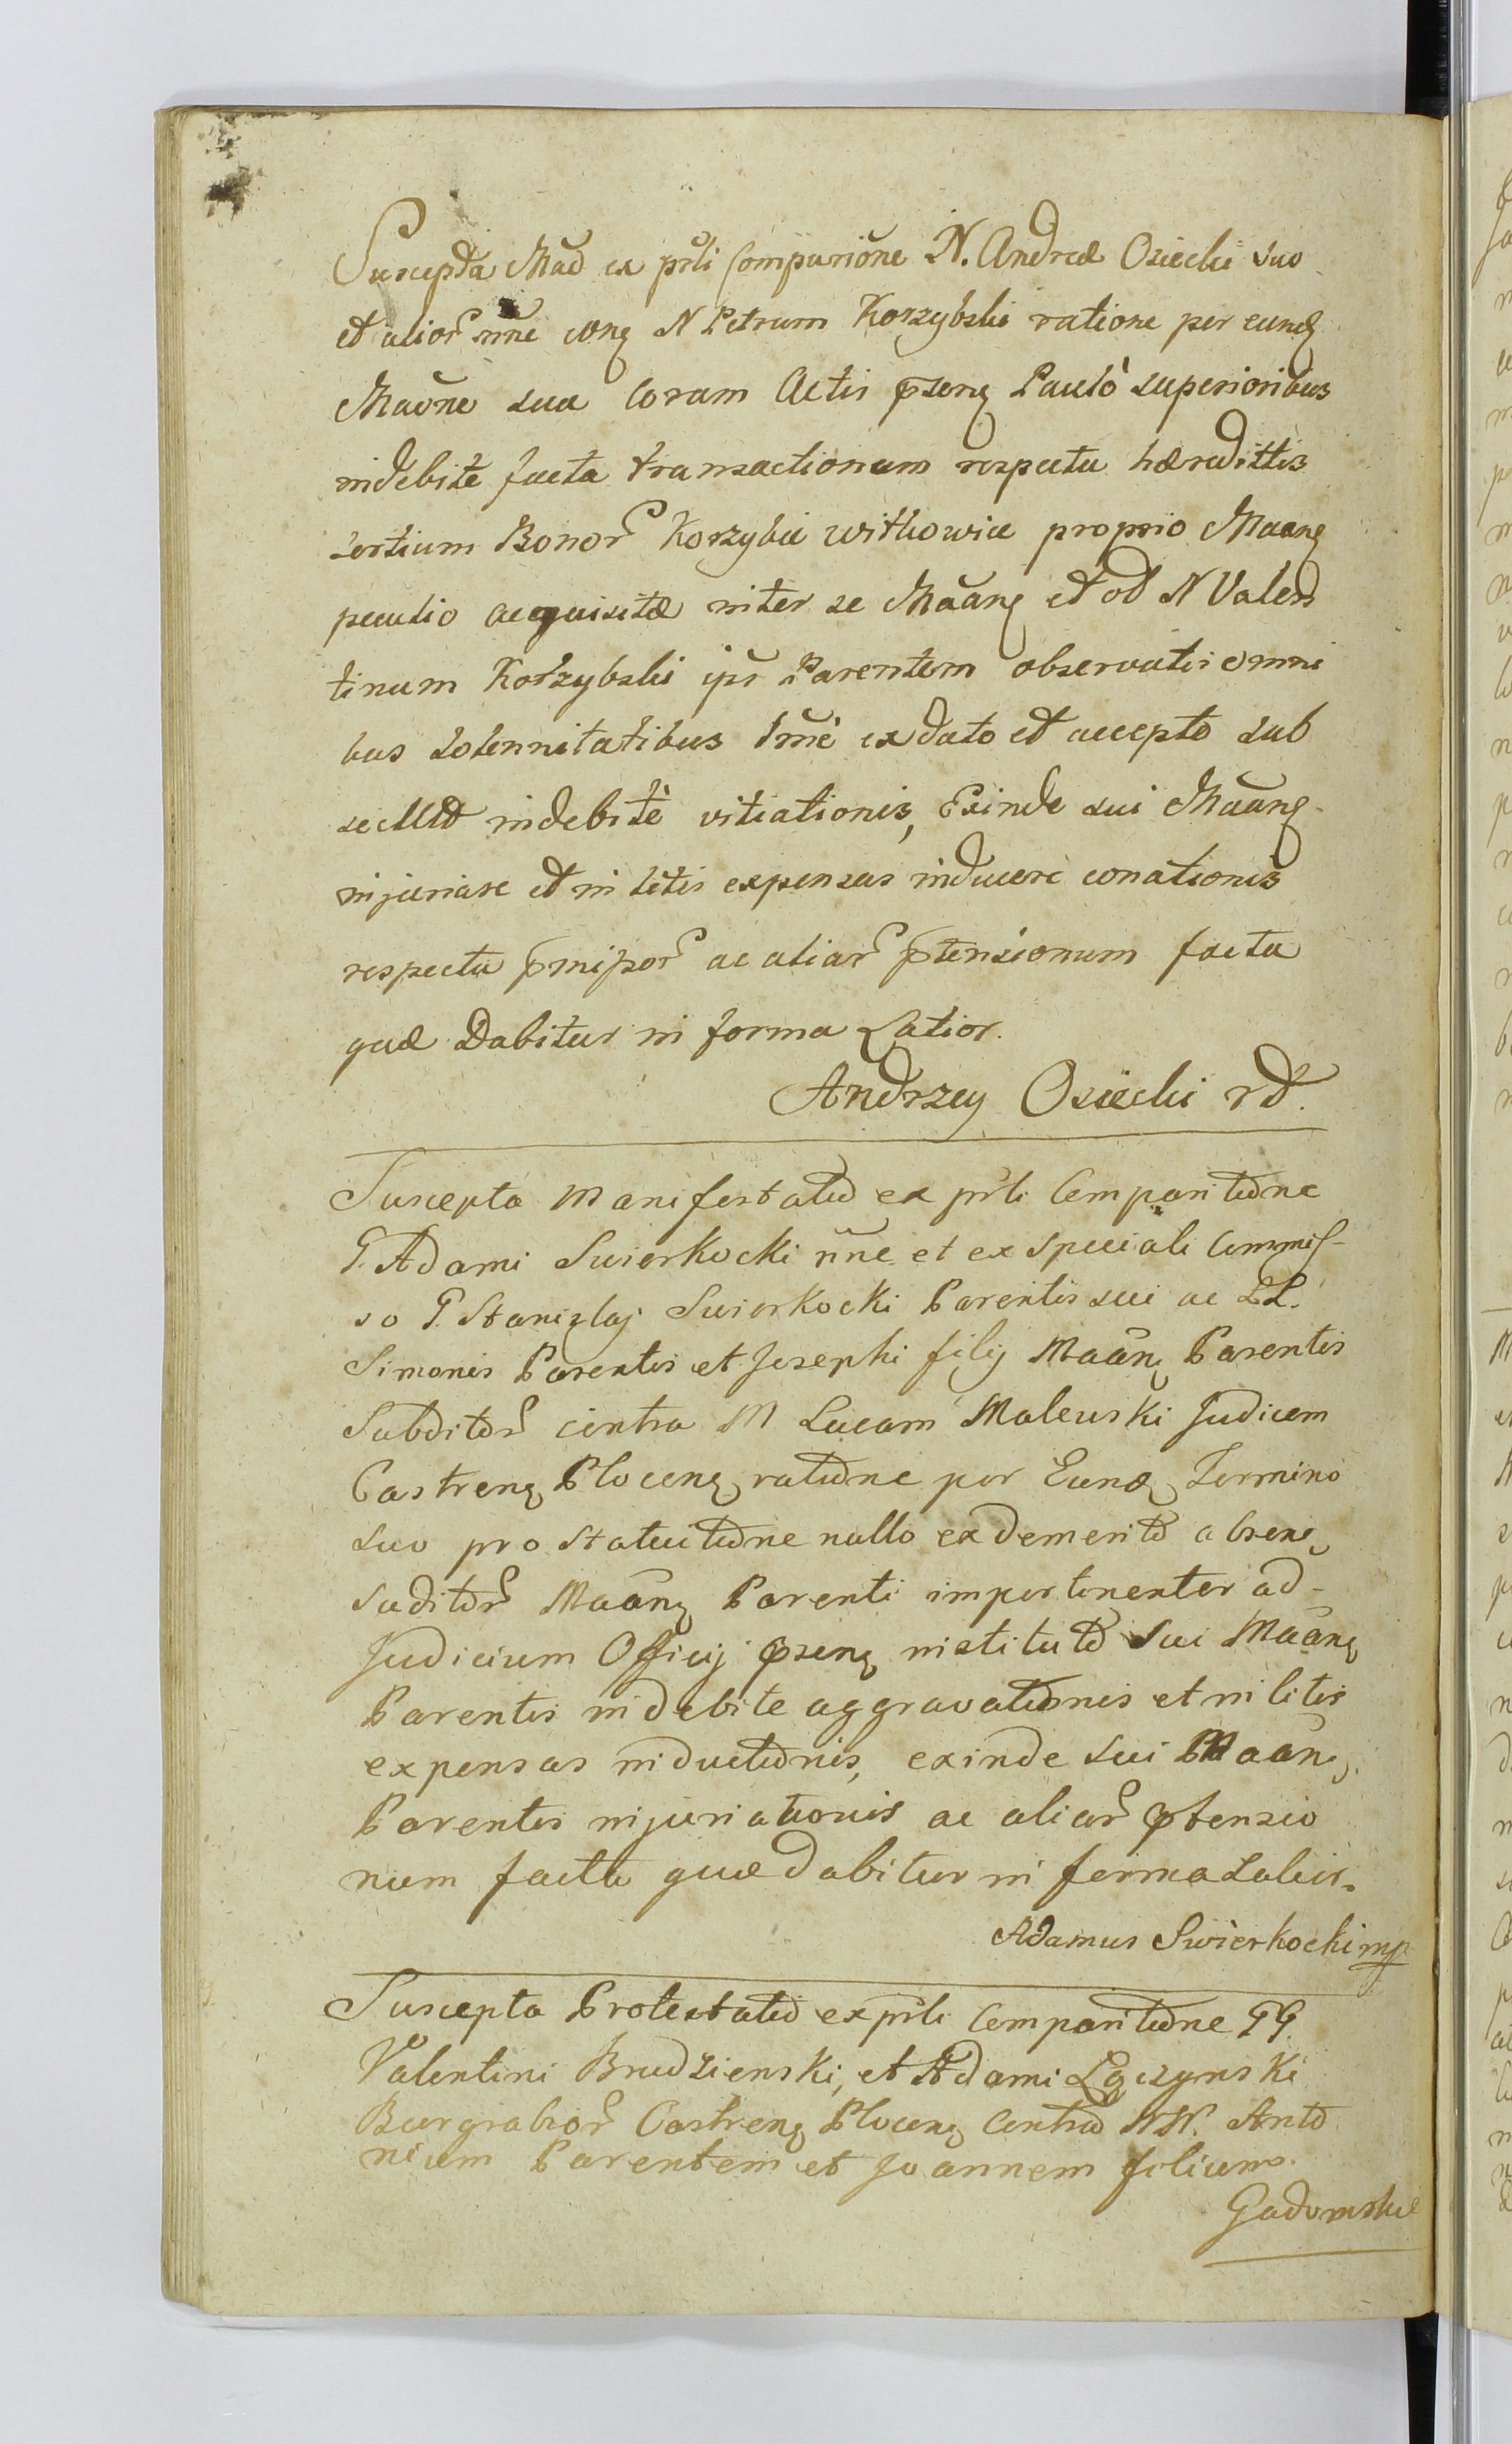 Suscepta Mãõ ex prĩli Comparione N. Andreæ Osiecki suo
et alior nñe cong N Petrum Korzybski ratione per eundꝫ
Maõne sua Coram Actis p̃seng Pauló superioribus
indebite facta transactionum respectu hæredittis
sortium Bonor Korzybie witkowice proprio Maang
peculio acquisitæ inter se Mãang et od N Valen
tinum Korzybski ips̃ Parentem observatis omni
bus solennitatibus exdato et accepto sub
indebitè vitiationis, Exinde sui Mãang
injuriare et in litis expensas inducere conationis
respectu p̃mispor ac aliar p̃tensionum facta
quæ Dabitur in forma Latior.
Andrzey Osiecki rd.
Suscepta Manifestatio ex prĩli Comparitione
G. Adami Swierkocki nñe et ex speciali Commis-
so G. Stanislaj Swierkocki Parentis sui ac LL.
Simonis Parentis et Josephi filij Mãang Parentis
Subditor contra M Lucam Malewski Judicem
Castreng Ploceng ratione per Eundꝫ Termino
suo pro statuitione nullo exdemerito absene
suditor Mãang Parenti impertinenter ad-
Judicium Officij p̃seng instituto Sui Mãang
Parentis indebite aggravationis et in litis
expensas inductionis, exinde sui Mãang
Parentis injuriationis ac aliar p̃tensio
num facta quæ dabitur in forma Latior.
Adamus Swierkocki mp
Suscepta Protestatio ex prĩli Comparitione GG.
Valentini Brudzienski, et Adami Łączynski
Burgrabior Castreng Ploceng Contra NN. Anto
nium Parentem et Joannem filium.
Gadomskie